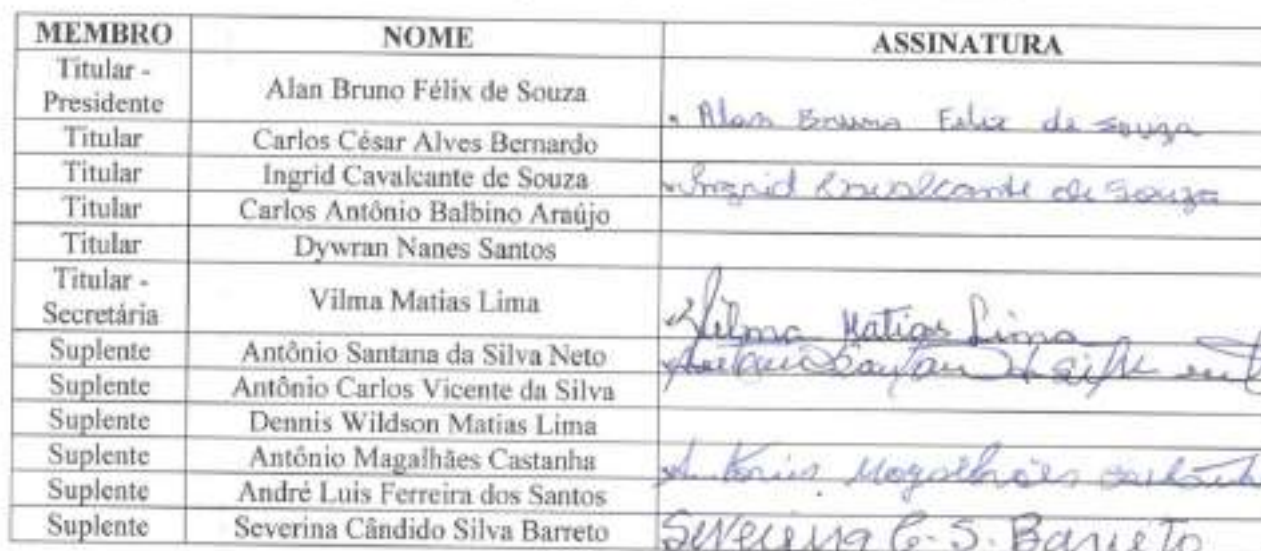 MEMBRO NOME ASSINATURA
Titular - Presidente Alan Bruno Félix de Souza Alan Bruno Felix de Souza
Titular Carlos César Alves Bernardo
Titular Ingrid Cavalcante de Souza Ingrid Cavalcante de Souza
Titular Carlos Antônio Balbino Araújo
Titular Dywran Nanes Santos
Titular - Secretária Vilma Matias Lima Vilma Matias Lima
Suplente Antônio Santana da Silva Neto
Suplente Antônio Carlos Vicente da Silva
Suplente Dennis Wildson Matias Lima
Suplente Antônio Magalhães Castanha Antonio Magalhães
Suplente André Luis Ferreira dos Santos
Suplente Severina Cândido Silva Barreto Severina C. S. Barreto